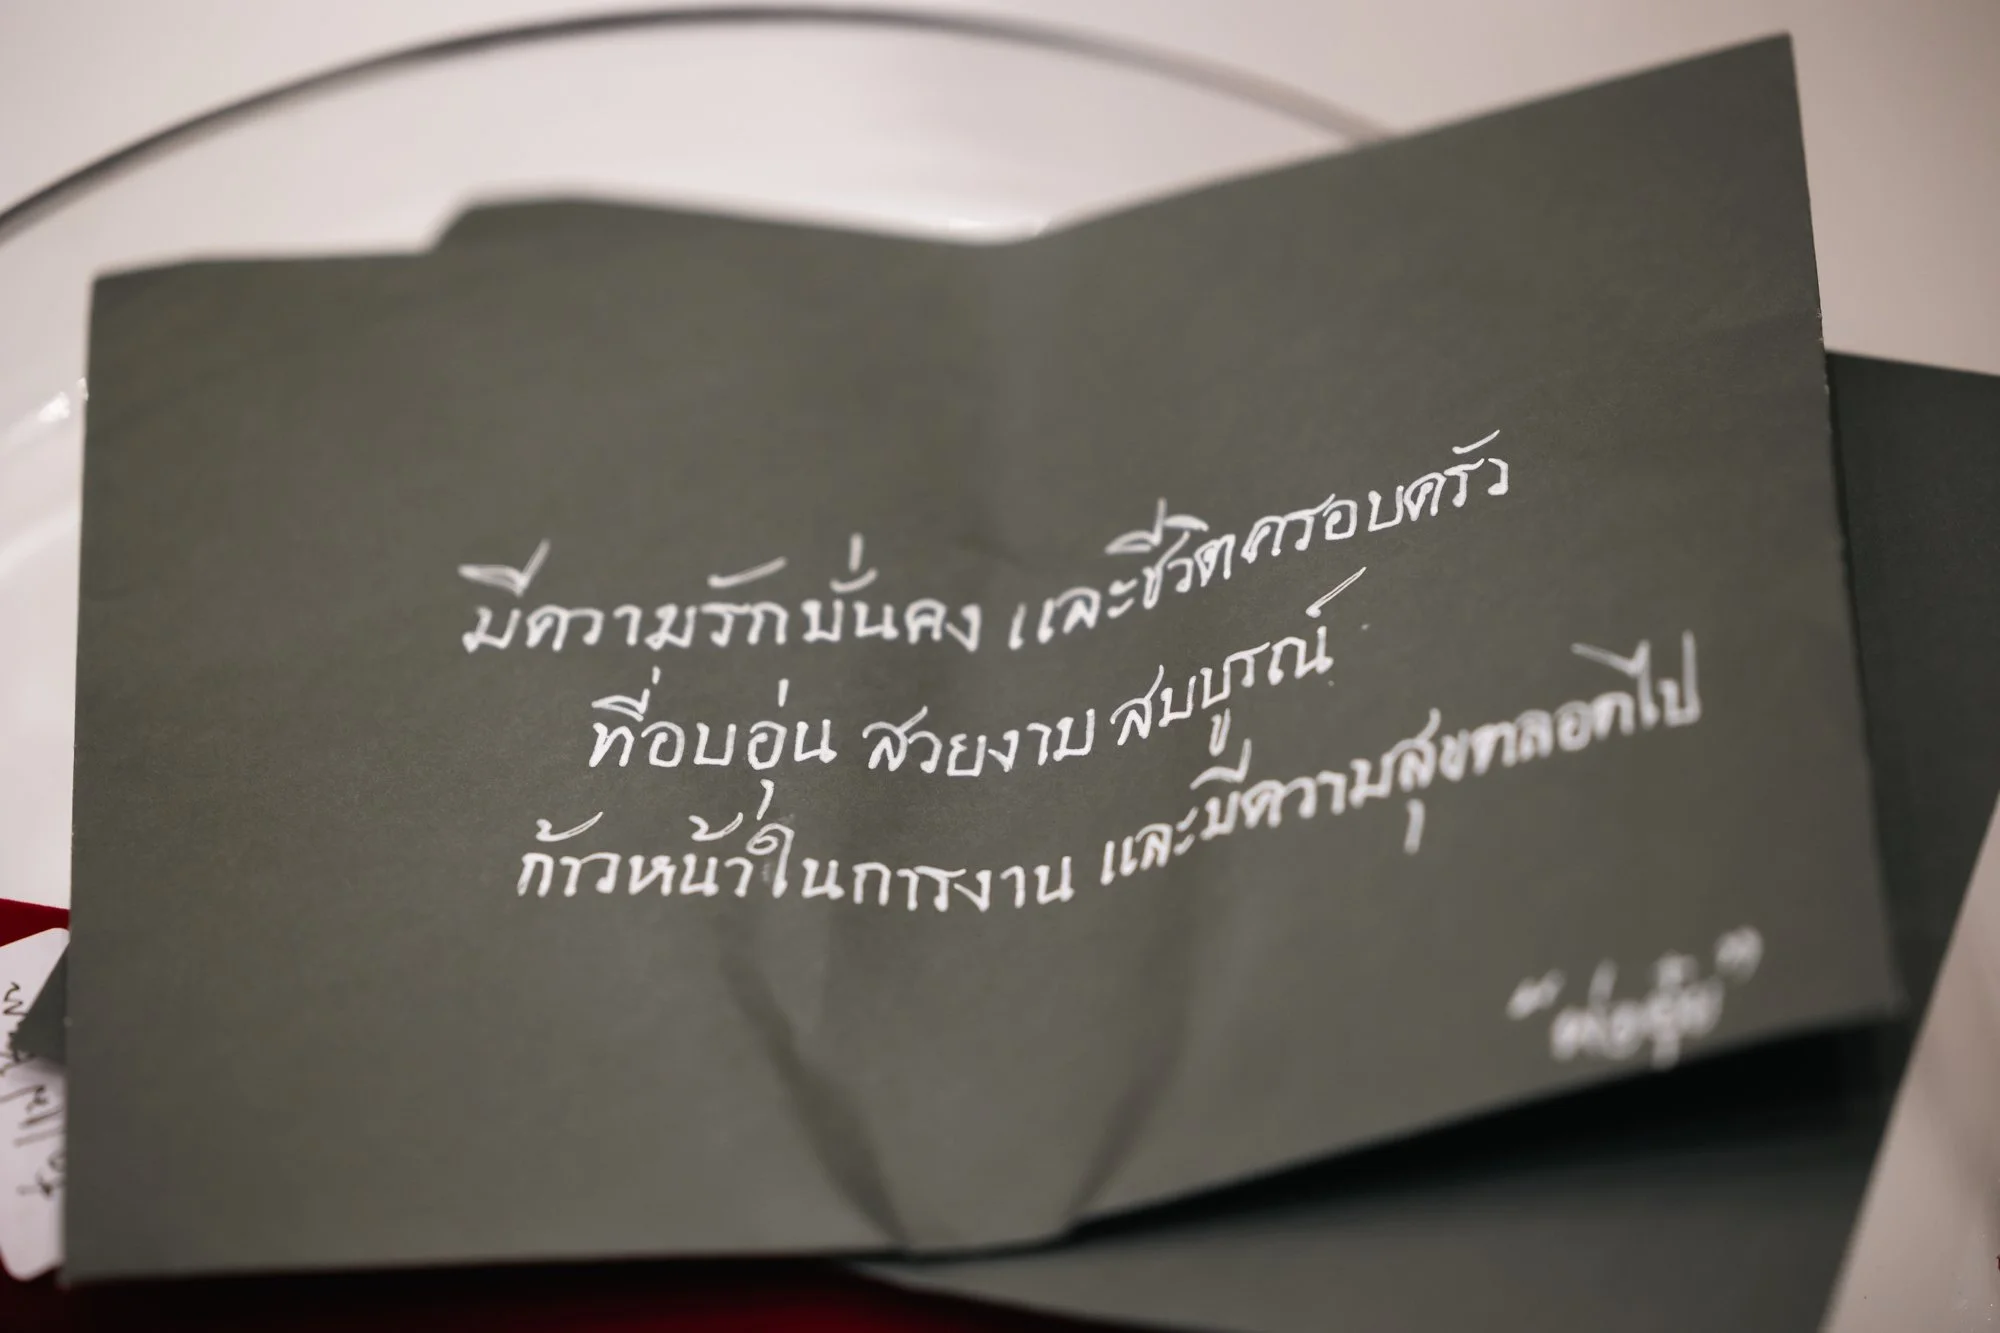 มีความรักมั่นคง และชีวิตครอบครัว
ที่อบอุ่น สวยงาม สมบูรณ์
ก้าวหน้าในการงาน และมีความสุขตลอดไป